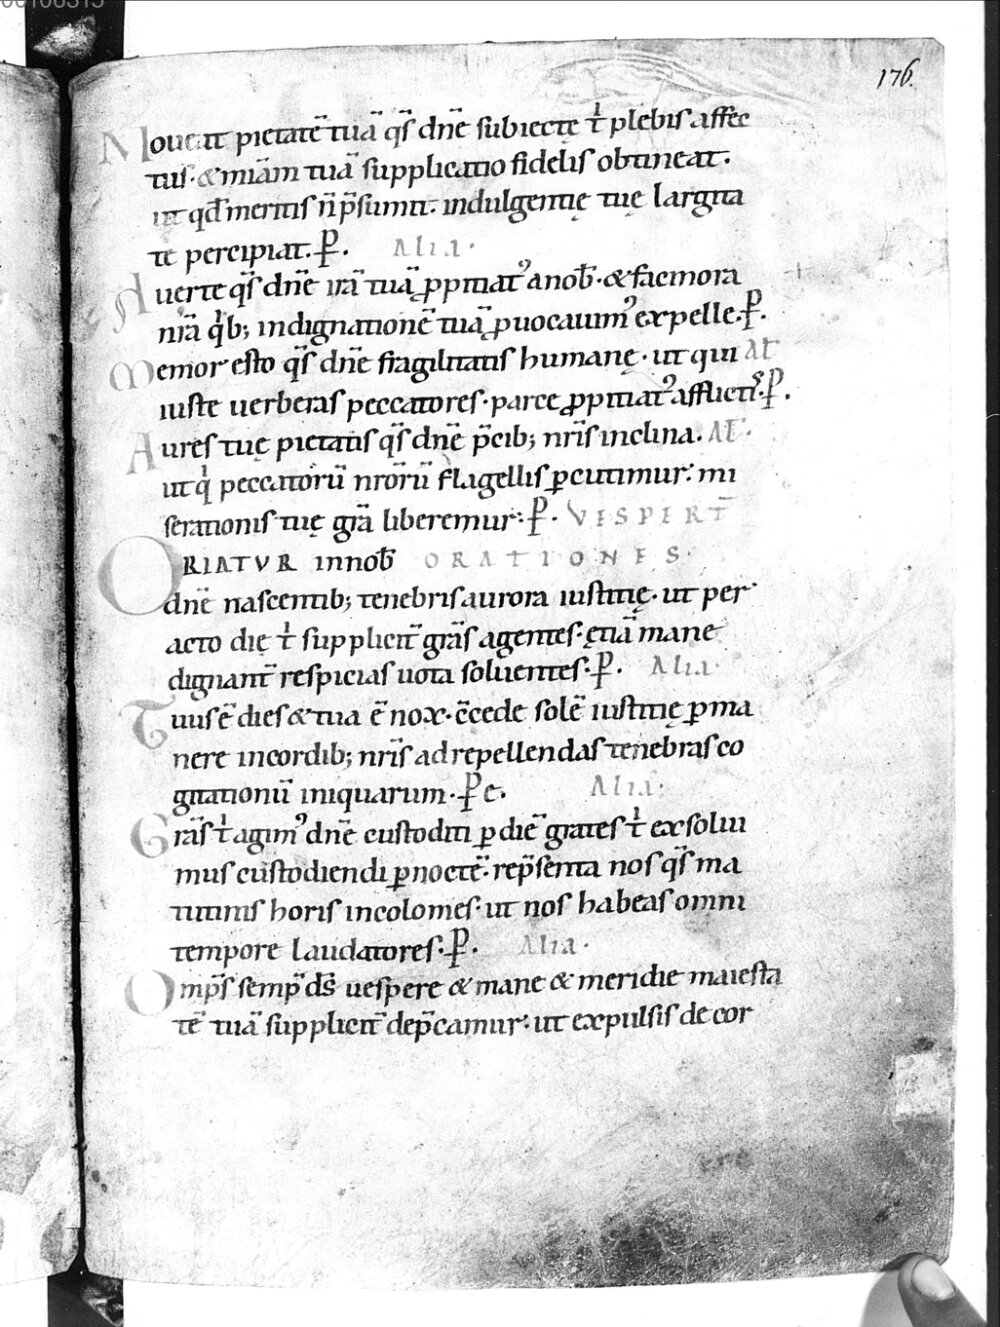 00108315
176.
Moueat pietatē tuā q̄s dn̄e subiectę t' plebis affec
tus· & mīam tuā supplicatio fidelis obtineat·
ut qđ meritis n̄ p̄sumit· indulgentię tuę largita
te percipiat· P̱. Alia·
Auerte q̄s dn̄e irā tuā ꝓpitiat' a nob̄· & facinora
nr̄a qⁱb; indignationē tuā ꝓuocauim' expelle· P̱.
Memor esto q̄s dn̄e fragilitatis humanę· ut qui Al̄
iuste uerberas peccatores· parce ꝓpitiat' afflictis· P̱.
Aures tuę pietatis q̄s dn̄e p̄cib; nr̄is inclina· Al̄·
ut qⁱ peccatorū nr̄orū flagellis ꝑcutimur· mi
serationis tuę gr̄a liberemur· P̱. VESPERT̄
ORIATVR in nob̄ ORATIONES·
dn̄e nascentib; tenebris aurora iustitię· ut per
acto die t' supplicit̄ gr̄as agentes· ętiā mane
dignant̄ respicias uota soluentes· P̱. Alia·
Tuus ē dies & tua ē nox· c̄cede solē iustitię ꝑma
nere in cordib; nr̄is ad repellendas tenebras co
gitationū iniquarum· P̱ e. Alia·
Gr̄as t' agim' dn̄e custoditi ꝑ diē grates t' exsolui
mus custodiendi ꝑ noctē· rep̄senta nos q̄s ma
tutinis horis incolomes· ut nos habeas omni
tempore laudatores· P̱. Alia·
Omp̄s semp̄ d̄s uespere & mane & meridie maiesta
tē tuā supplicit̄ dep̄camur· ut expulsis de cor